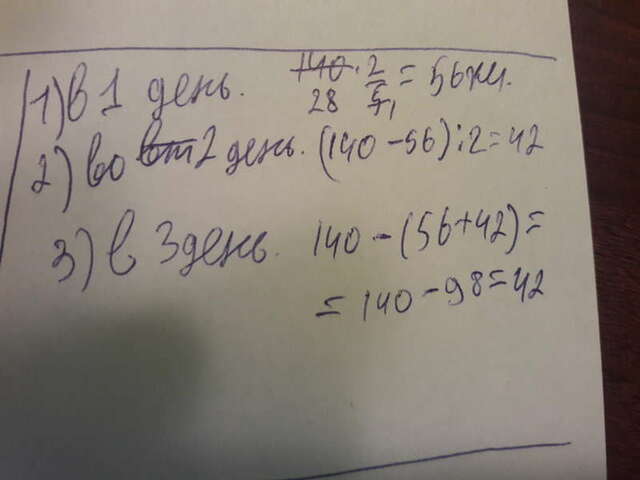 1) в 1 день. 140 · 2/5 = 56 км.
28 1
2) во вт 2 день. (140 - 56) : 2 = 42
3) в 3 день. 140 - (56 + 42) =
= 140 - 98 = 42